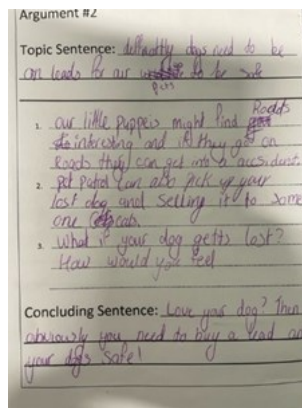 Argument #2
Topic Sentence: deffinatly dogs need to be
on leads for our pets to be safe
1. our little puppeis might find Roads
interesting and if they get on
Roads they can get into a
2. Pet patrol can also pick up your
lost dog and selling it to some
one
3. What if your dog getts lost?
How would you feel
Concluding Sentence: Love your dog? Then
obviously you need to buy a lead
your dogs safe!